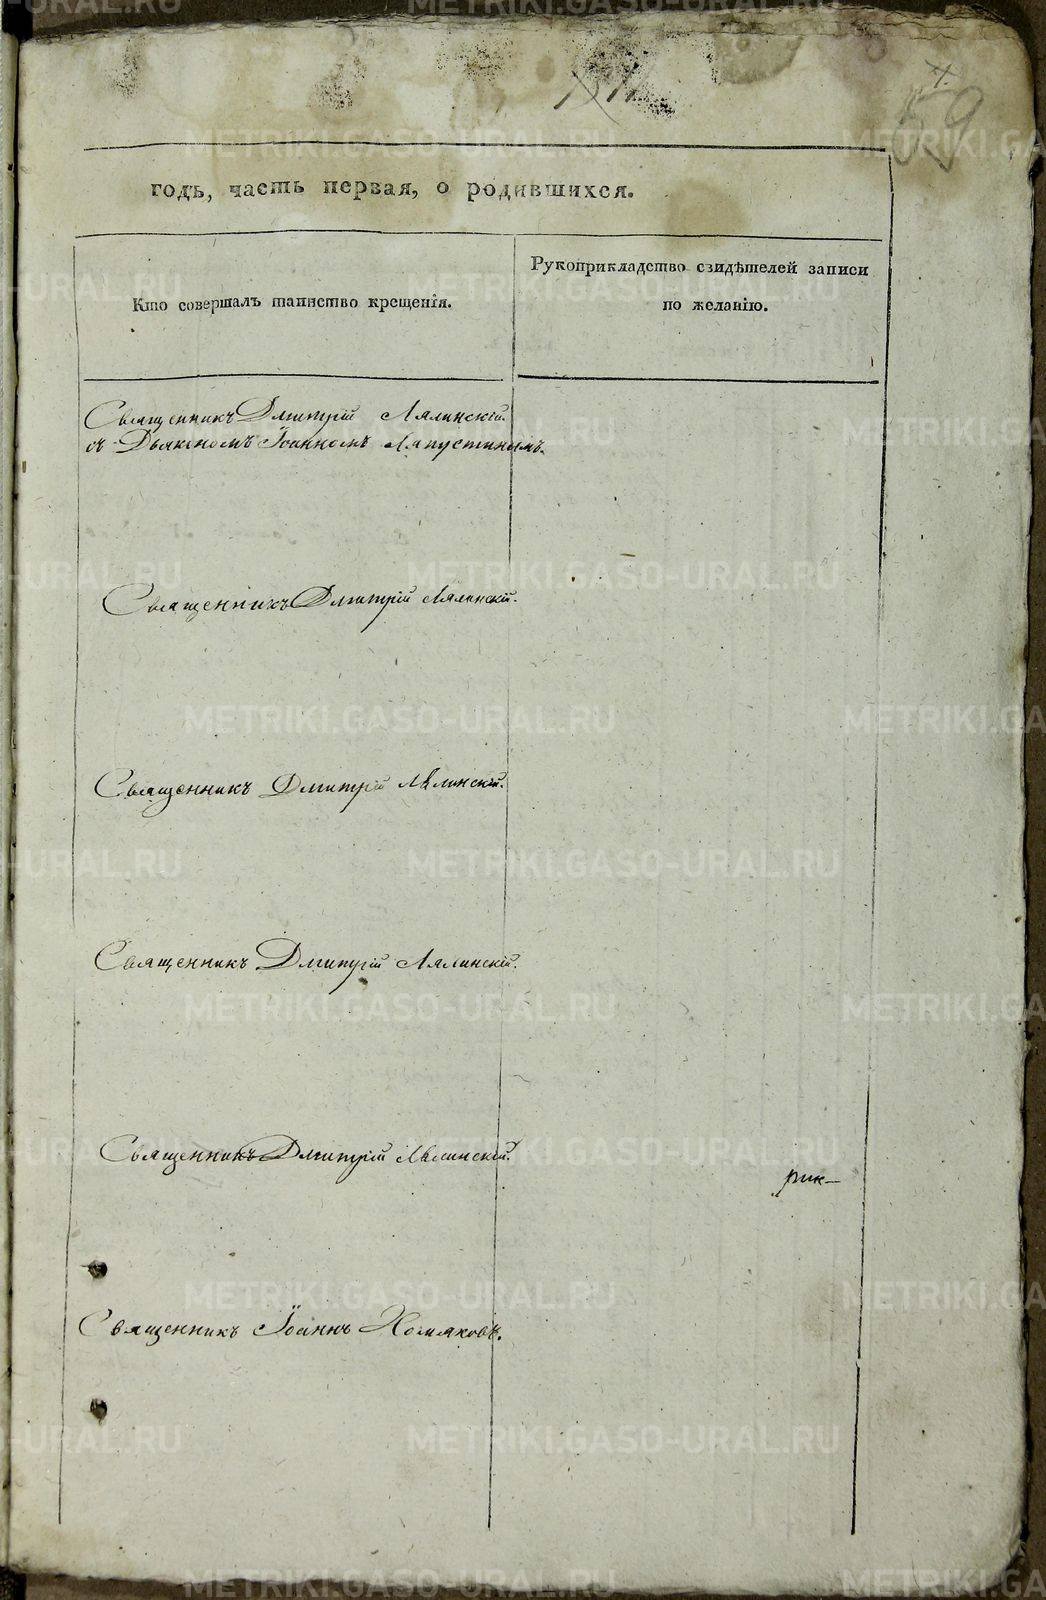 59
годъ, часть первая, о родившихся.
Кто совершалъ таинство крещенія.
Рукоприкладство свидѣтелей записи
по желанію.
Священникъ Дмитрій Лялинскій
съ Дьякономъ Іоанномъ Лапустинымъ.
Священникъ Дмитрій Лялинскій.
Священникъ Дмитрій Лялинскій.
Священникъ Дмитрій Лялинскій.
Священникъ Дмитрій Лялинскій.
рик-
Священникъ Іоаннъ Хомяковъ.
METRIKI.GASO-URAL.RU